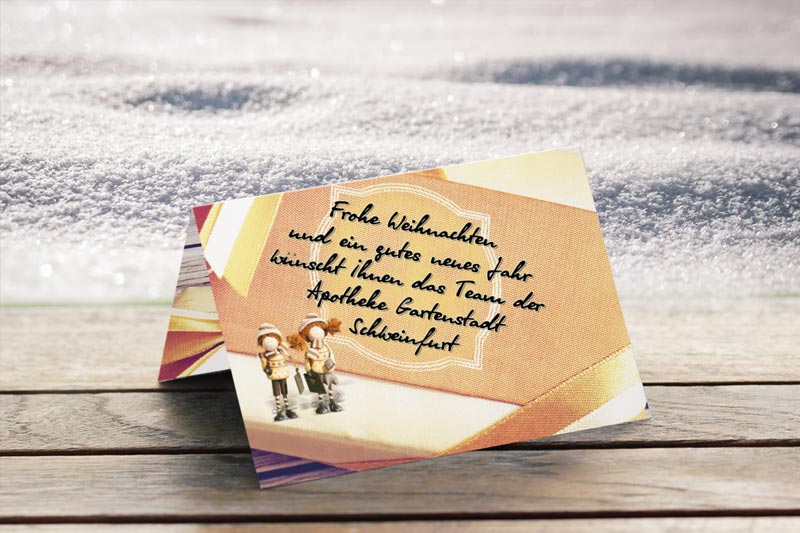 Frohe Weihnachten
und ein gutes neues Jahr
wünscht Ihnen das Team der
Apotheke Gartenstadt
Schweinfurt